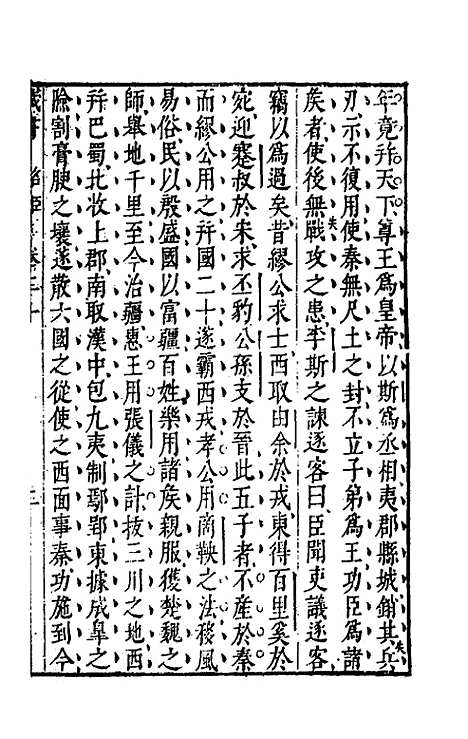 年竟并天下尊王爲皇帝以斯爲丞相夷郡縣城銷其兵
刃示不復用使秦無尺土之封不立子弟爲王功臣爲諸
矦者使後無戰攻之患李斯之諫逐客曰臣聞吏議逐客
竊以爲過矣昔繆公求士西取由余於戎東得百里奚於
宛迎蹇叔於宋求丕豹公孫支於晉此五子者不產於秦
而繆公用之并國二十遂霸西戎孝公用商鞅之法移風
易俗民以殷盛國以富疆百姓樂用諸矦親服獲楚魏之
師舉地千里至今治疆惠王用張儀之計拔三川之地西
并巴蜀北收上郡南取漢中包九夷制鄢郢東據成臯之
險割膏腴之壤遂散六國之從使之西面事秦功施到今
藏書 卷三十 三